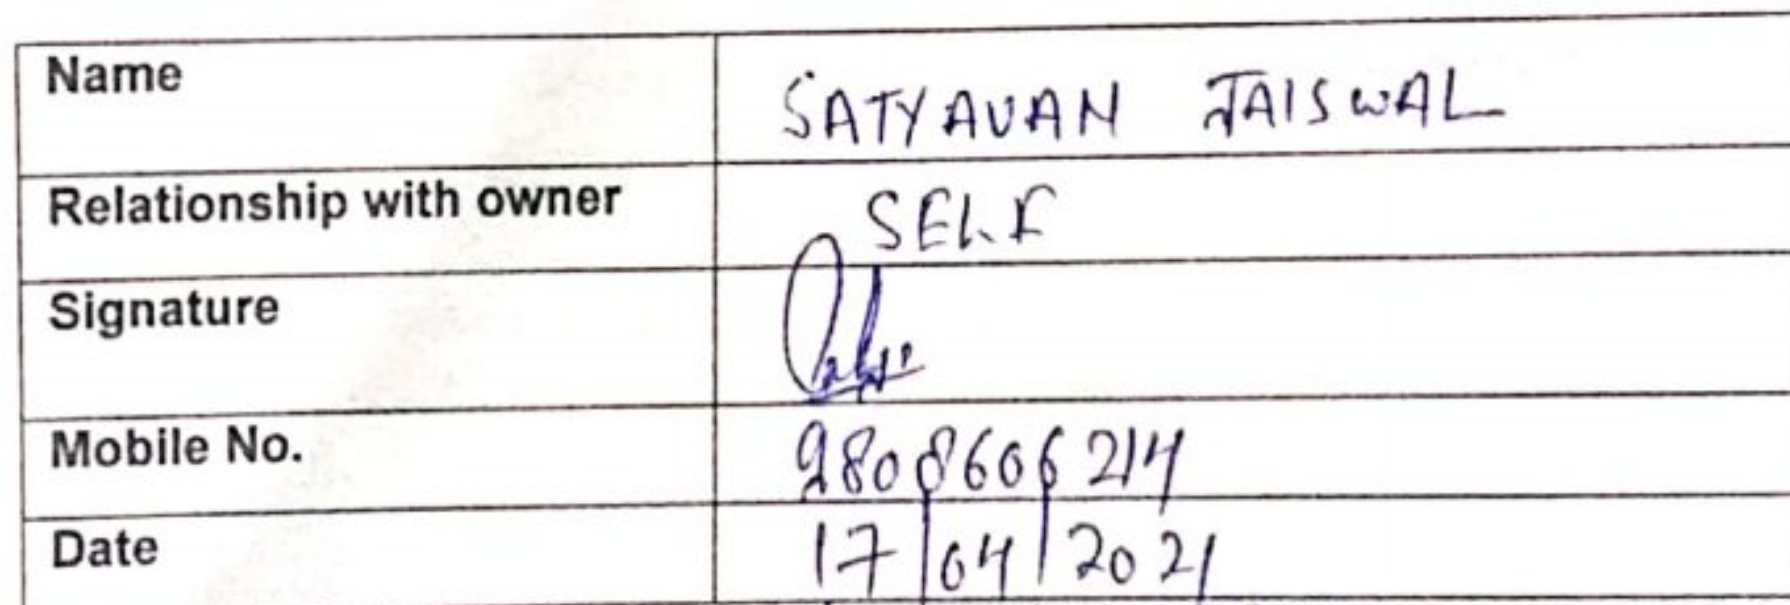 Name SATYAVAN JAISWAL
Relationship with owner SELF
Signature
Mobile No. 9808606214
Date 17/04/2021